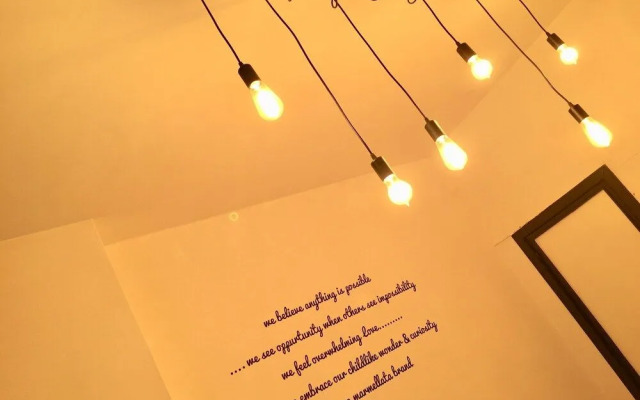 we believe anything is possible
.... we see oppurtunity when others see impossibility
we feel overwhelming love.........
embrace our childlike wonder & curiosity
marmellata brand